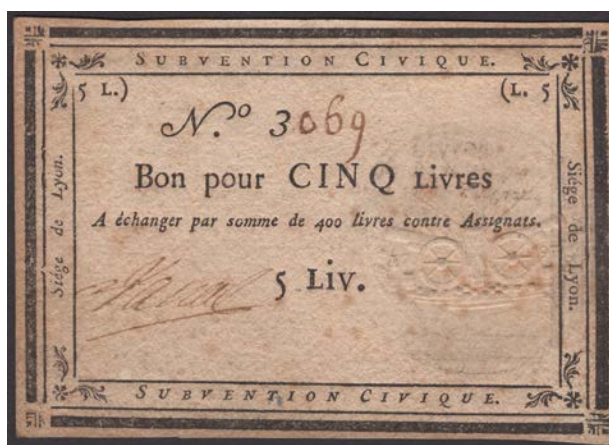 SUBVENTION CIVIQUE.
5 L.) (L. 5
N.º 3069
Bon pour CINQ Livres
A échanger par somme de 400 livres contre Assignats.
5 Liv.
Siége de Lyon.
Siége de Lyon.
SUBVENTION CIVIQUE.